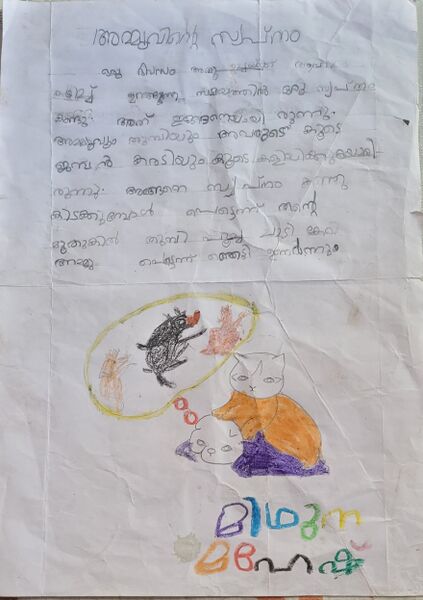 അമ്മുവിന്റെ സ്വപ്നം
ഒരു ദിവസം അമ്മു
ഉറങ്ങുന്ന സമയത്തിൽ ഒരു സ്വപ്നം
കണ്ടു. അത് ഇങ്ങനെയായി രുന്നു.
അമ്മുവും തുമ്പിയും അവരുടെ കൂടെ
ജമ്പൻ കരടിയും കൂടെ കളിക്കുകയായി
രുന്നു. അങ്ങനെ സ്വപ്നം കണ്ടു
കിടക്കുമ്പോൾ പെട്ടെന്ന് തന്റെ
മുതുകിൽ തുമ്പി പൂച്ച ചാടി
അമ്മു പെട്ടെന്ന് ഞെട്ടി ഉണർന്നു.
മിഥുന
മഹേഷ്